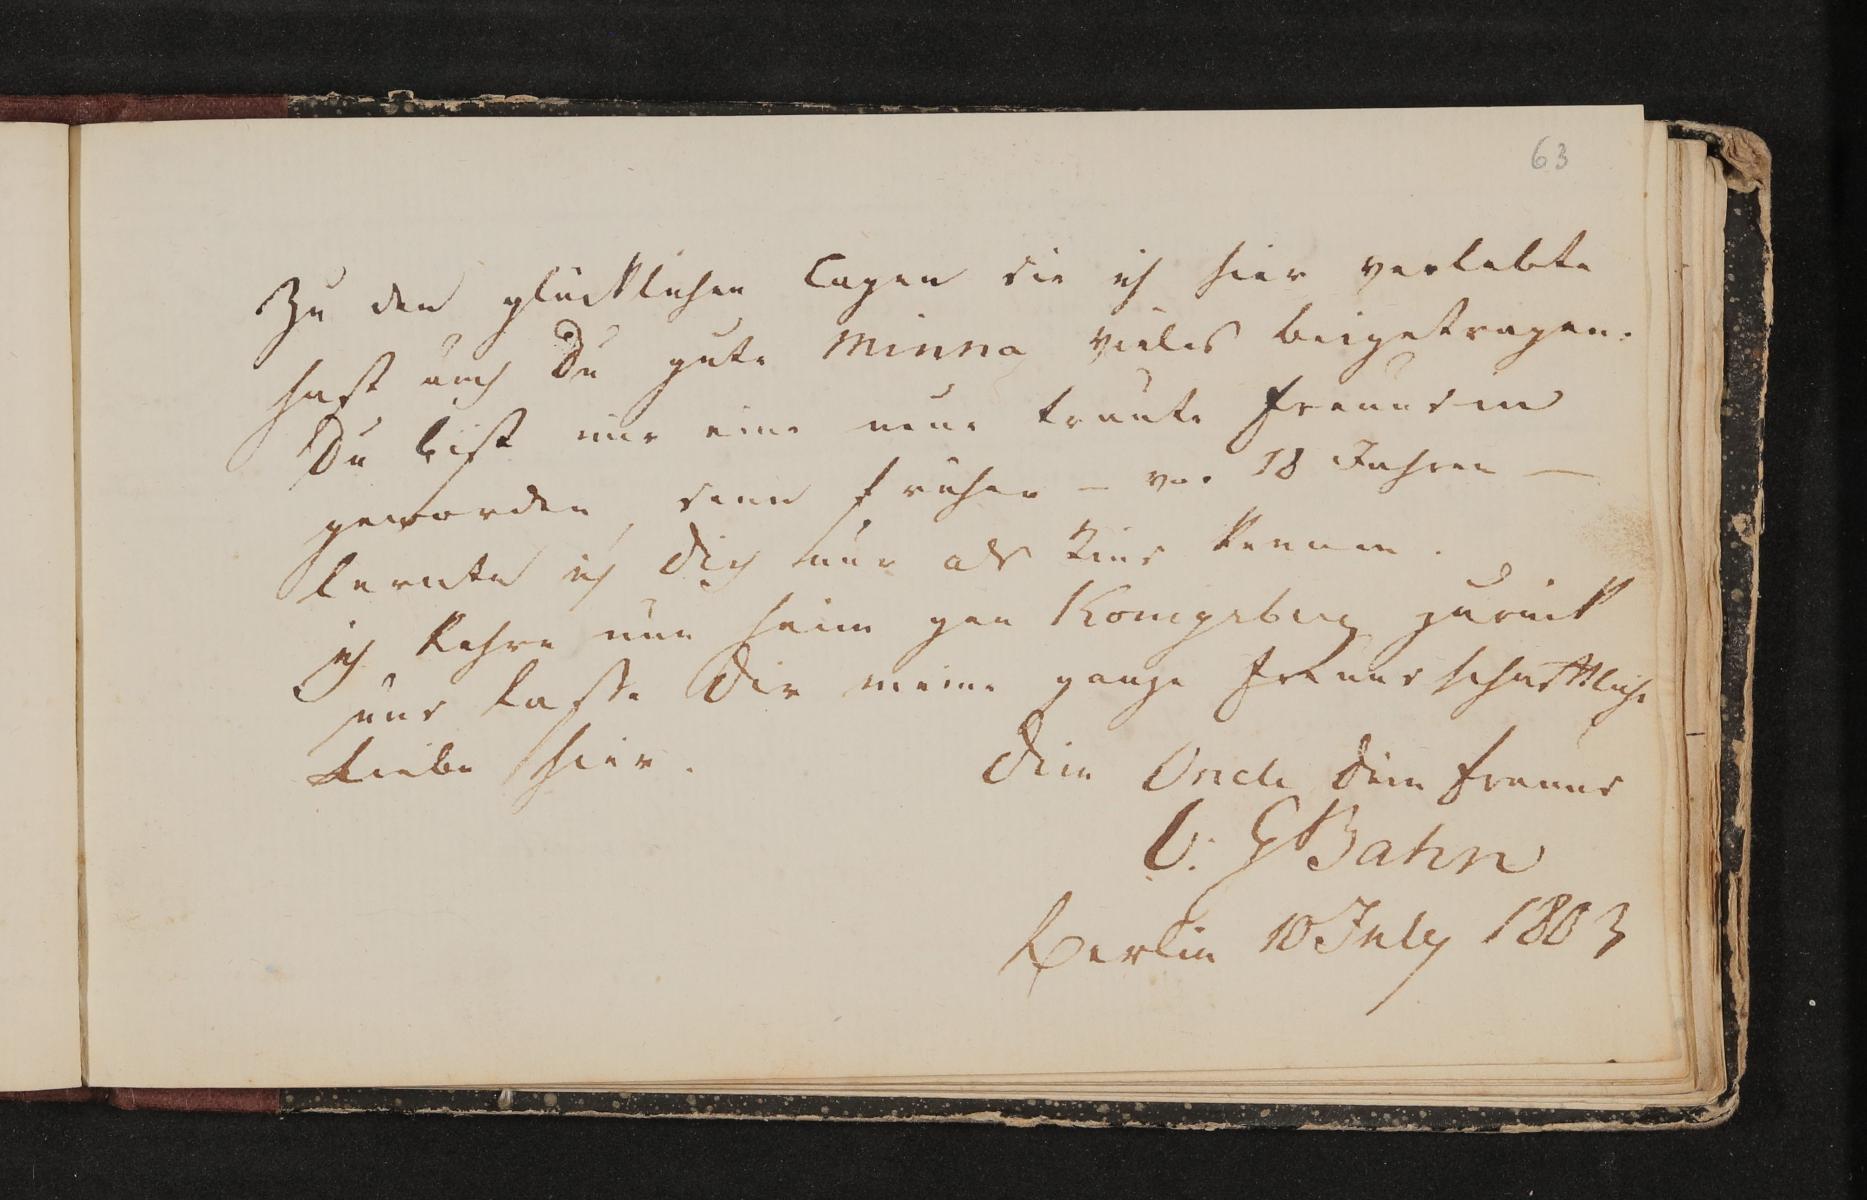 63
Zu den glücklichen Tagen die ich hier verlebte
hast auch Du gute Minna vieles beigetragen.
Du bist mir eine neue traute Freundin
geworden, denn früher – vor 18 Jahren –
lernte ich Dich nur als Kind kennen.
ich kehre nun heim gen Königsberg zurück
und lasse Dir meine ganze freundschaftliche
Liebe hier.
Dein Oncle Dein Freund
C: G Bahn
Berlin 10 July 1803